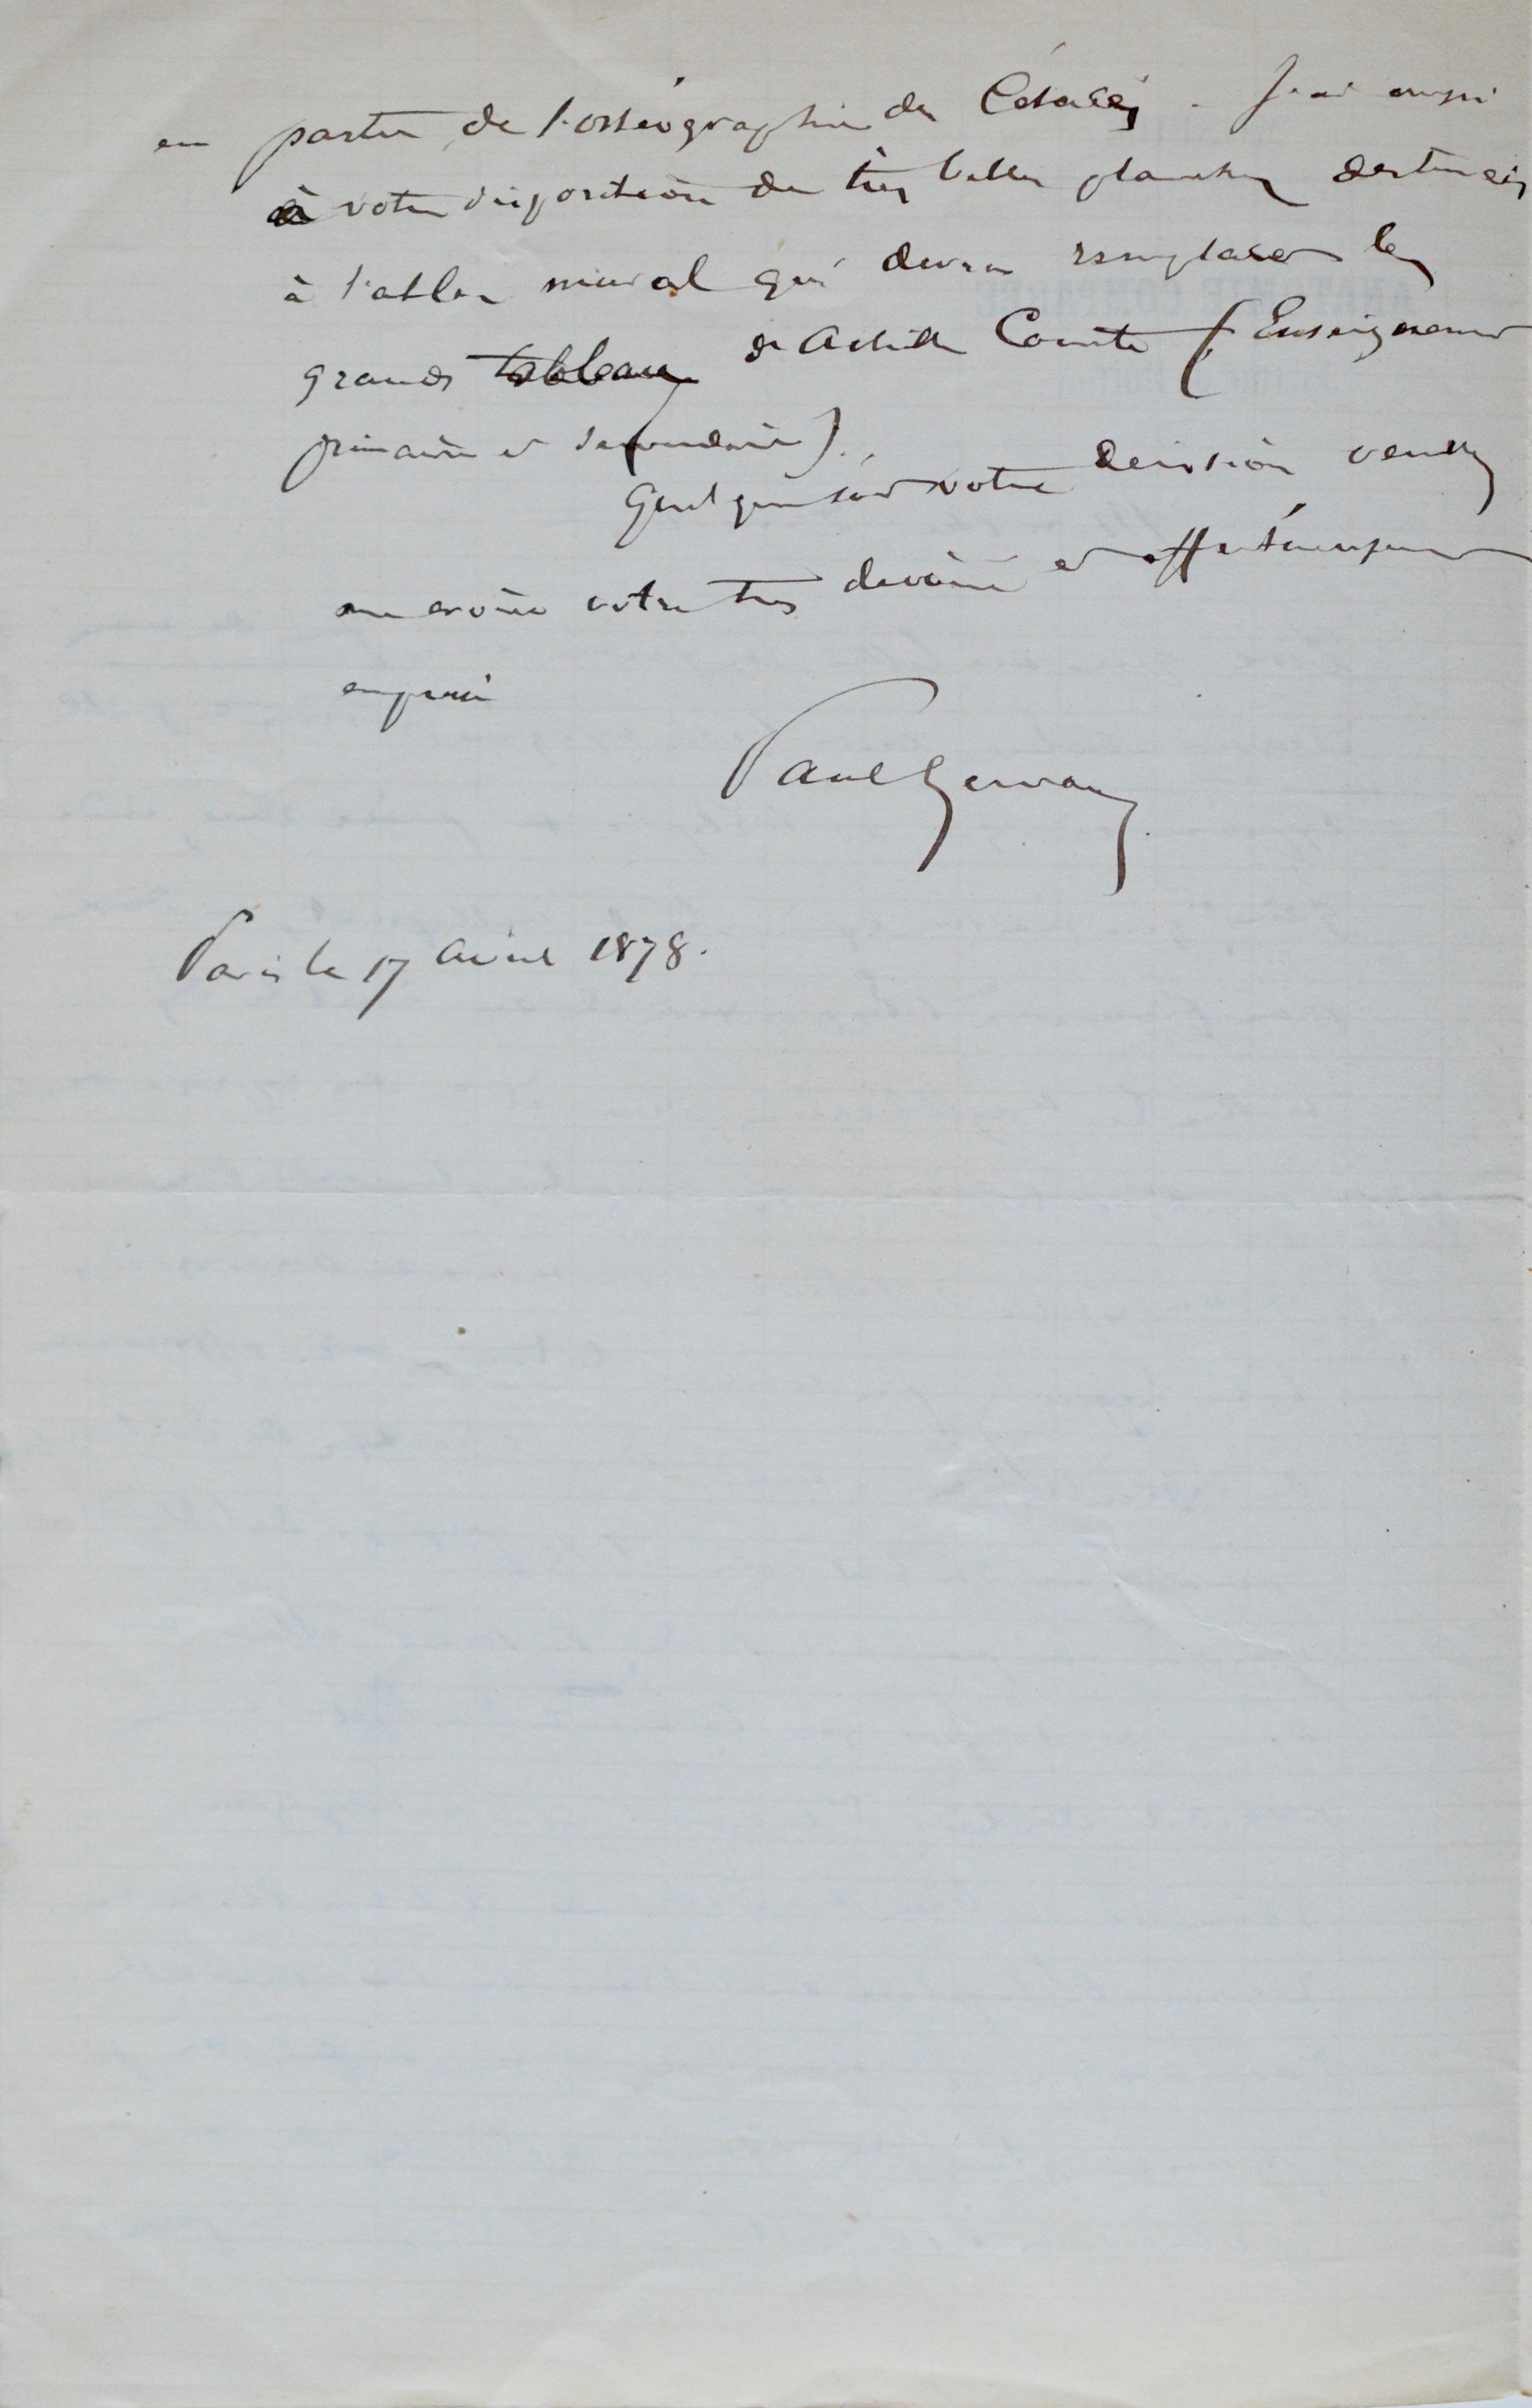 en partie de l'ostéographie des Cétacés. J'ai aussi
à votre disposition de très belles planches destinées
à l'atlas mural qui devra remplacer les
grands tableaux d'Achille Comte (Enseignement
primaire et secondaire).
Quelque soit votre décision veuillez
me croire votre très dévoué et affectueusement
Paul Gervais
Paris le 17 avril 1878.